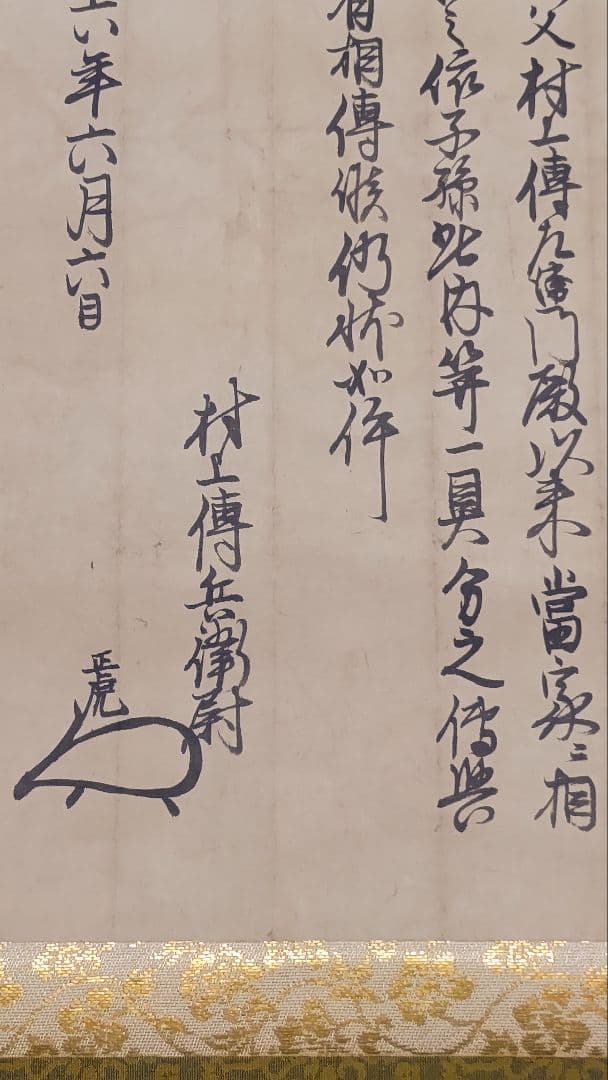 父村上傳左衛門殿以来當家ニ相
依子孫此内算一貫分之傳與
有相傳候仍状如件
六年六月六日
村上傳兵衛尉
正虎